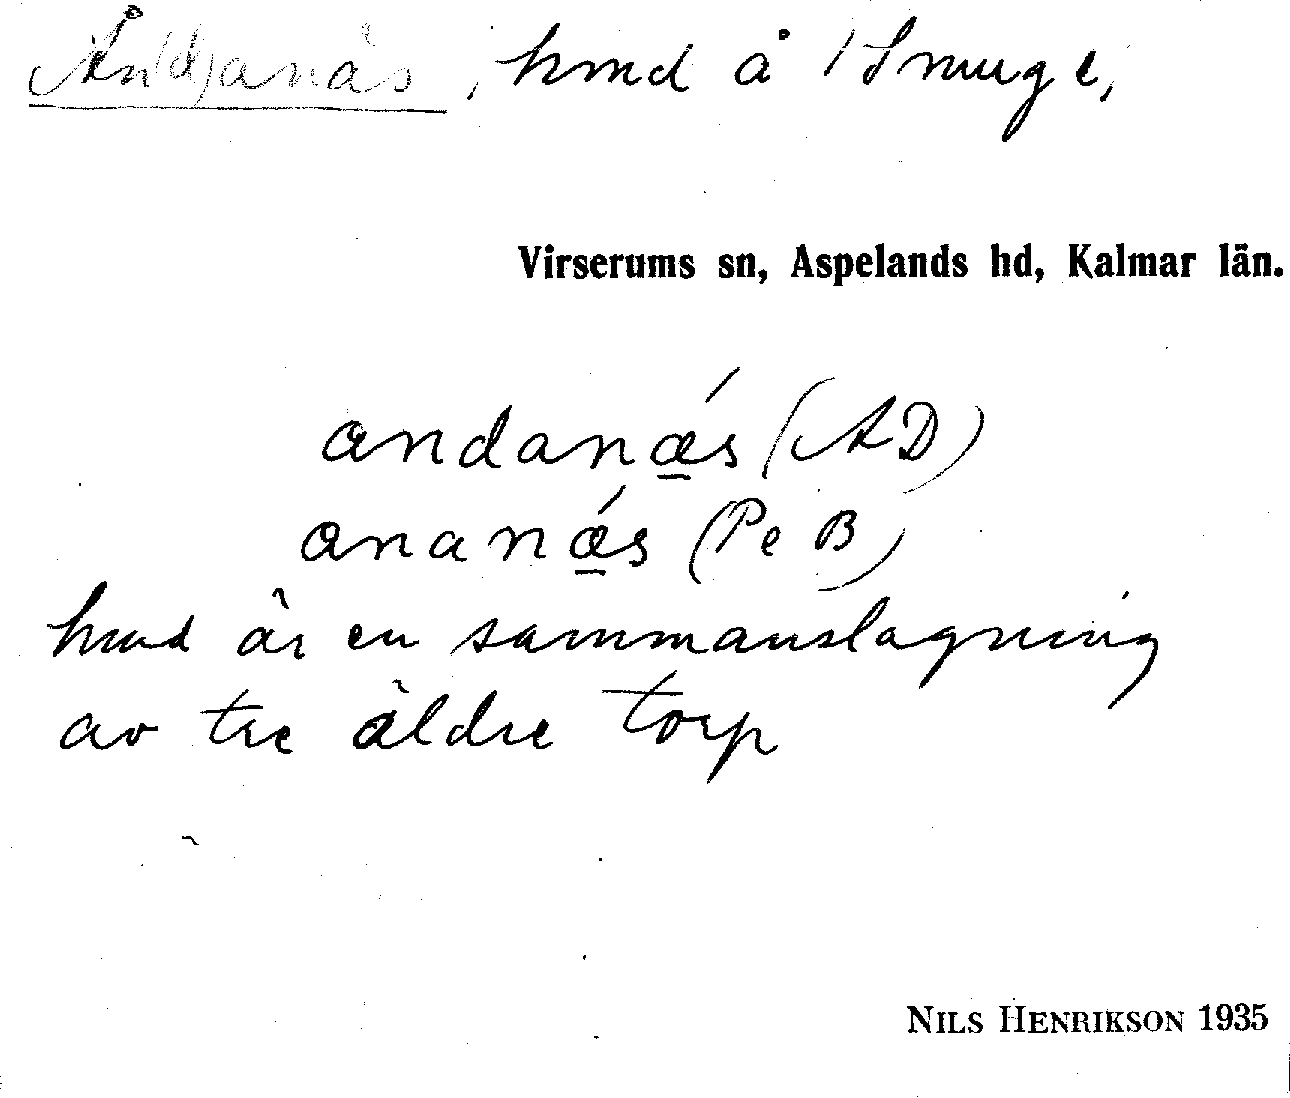 Ån(d)anäs, hmd å 1 Smuge,
Virserums sn, Aspelands hd, Kalmar län.
andanǽs (AD)
ananǽs (Pe B)
hmd är en sammanslagning
av tre äldre torp
NILS HENRIKSON 1935